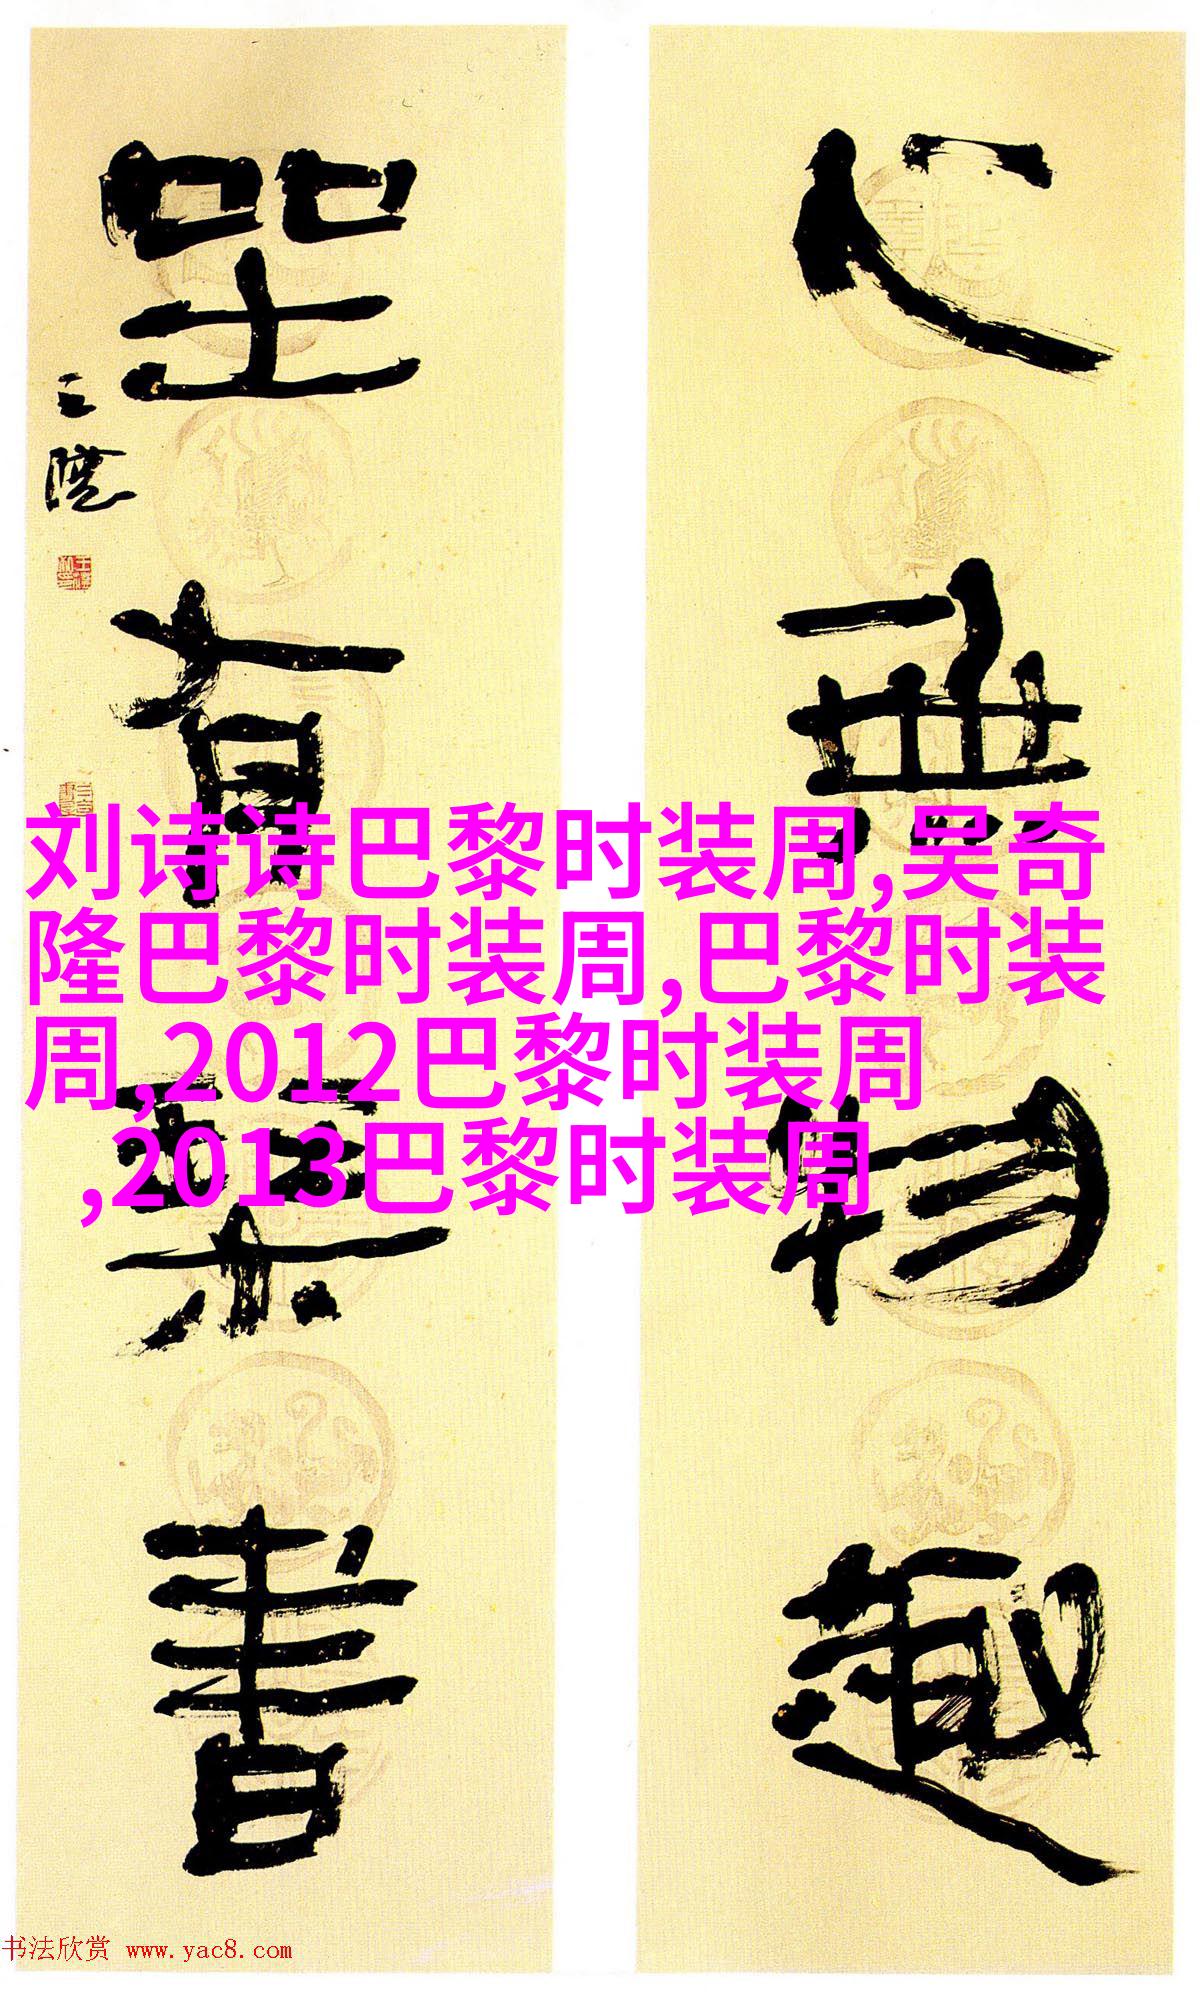 心無物趣
坐有琴書
王镛
刘诗诗巴黎时装周,吴奇
隆巴黎时装周,巴黎时装
周,2012巴黎时装周
,2013巴黎时装周
书法欣赏 www.yac8.com